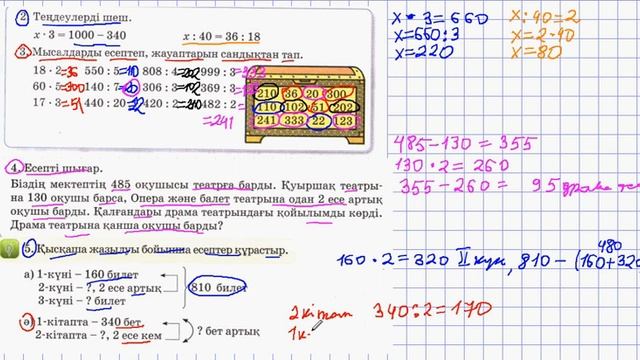 2. Теңдеулерді шеш.
x · 3 = 1000 − 340
x : 40 = 36 : 18
3. Мысалдарды есептеп, жауаптарын сандықтан тап.
18 · 2 = 36 550 : 5 = 110 808 : 4 = 202 999 : 3 = 333
60 · 5 = 300 140 : 7 = 20 306 : 3 = 102 369 : 3 =
17 · 3 = 51 440 : 20 = 22 420 : 2 = 210 482 : 2 =
= 241
210 36 20 300
110 102 51 202
241 333 22 123
4. Есепті шығар.
Біздің мектептің 485 оқушысы театрға барды. Қуыршақ театры-
на 130 оқушы барса, Опера және балет театрына одан 2 есе артық
оқушы барды. Қалғандары драма театрындағы қойылымды көрді.
Драма театрына қанша оқушы барды?
5. Қысқаша жазылуы бойынша есептер құрастыр.
а) 1-күні – 160 билет
2-күні – ?, 2 есе артық
3-күні – ? билет
810 билет
ә) 1-кітапта – 340 бет
2-кітапта – ?, 2 есе кем
? бет артық
x · 3 = 660
x = 660 : 3
x = 220
x : 40 = 2
x = 2 · 40
x = 80
485 − 130 = 355
130 · 2 = 260
355 − 260 = 95 драма
480
160 · 2 = 320 II күн, 810 − (160 + 320
2 кітап 340 : 2 = 170
1 к